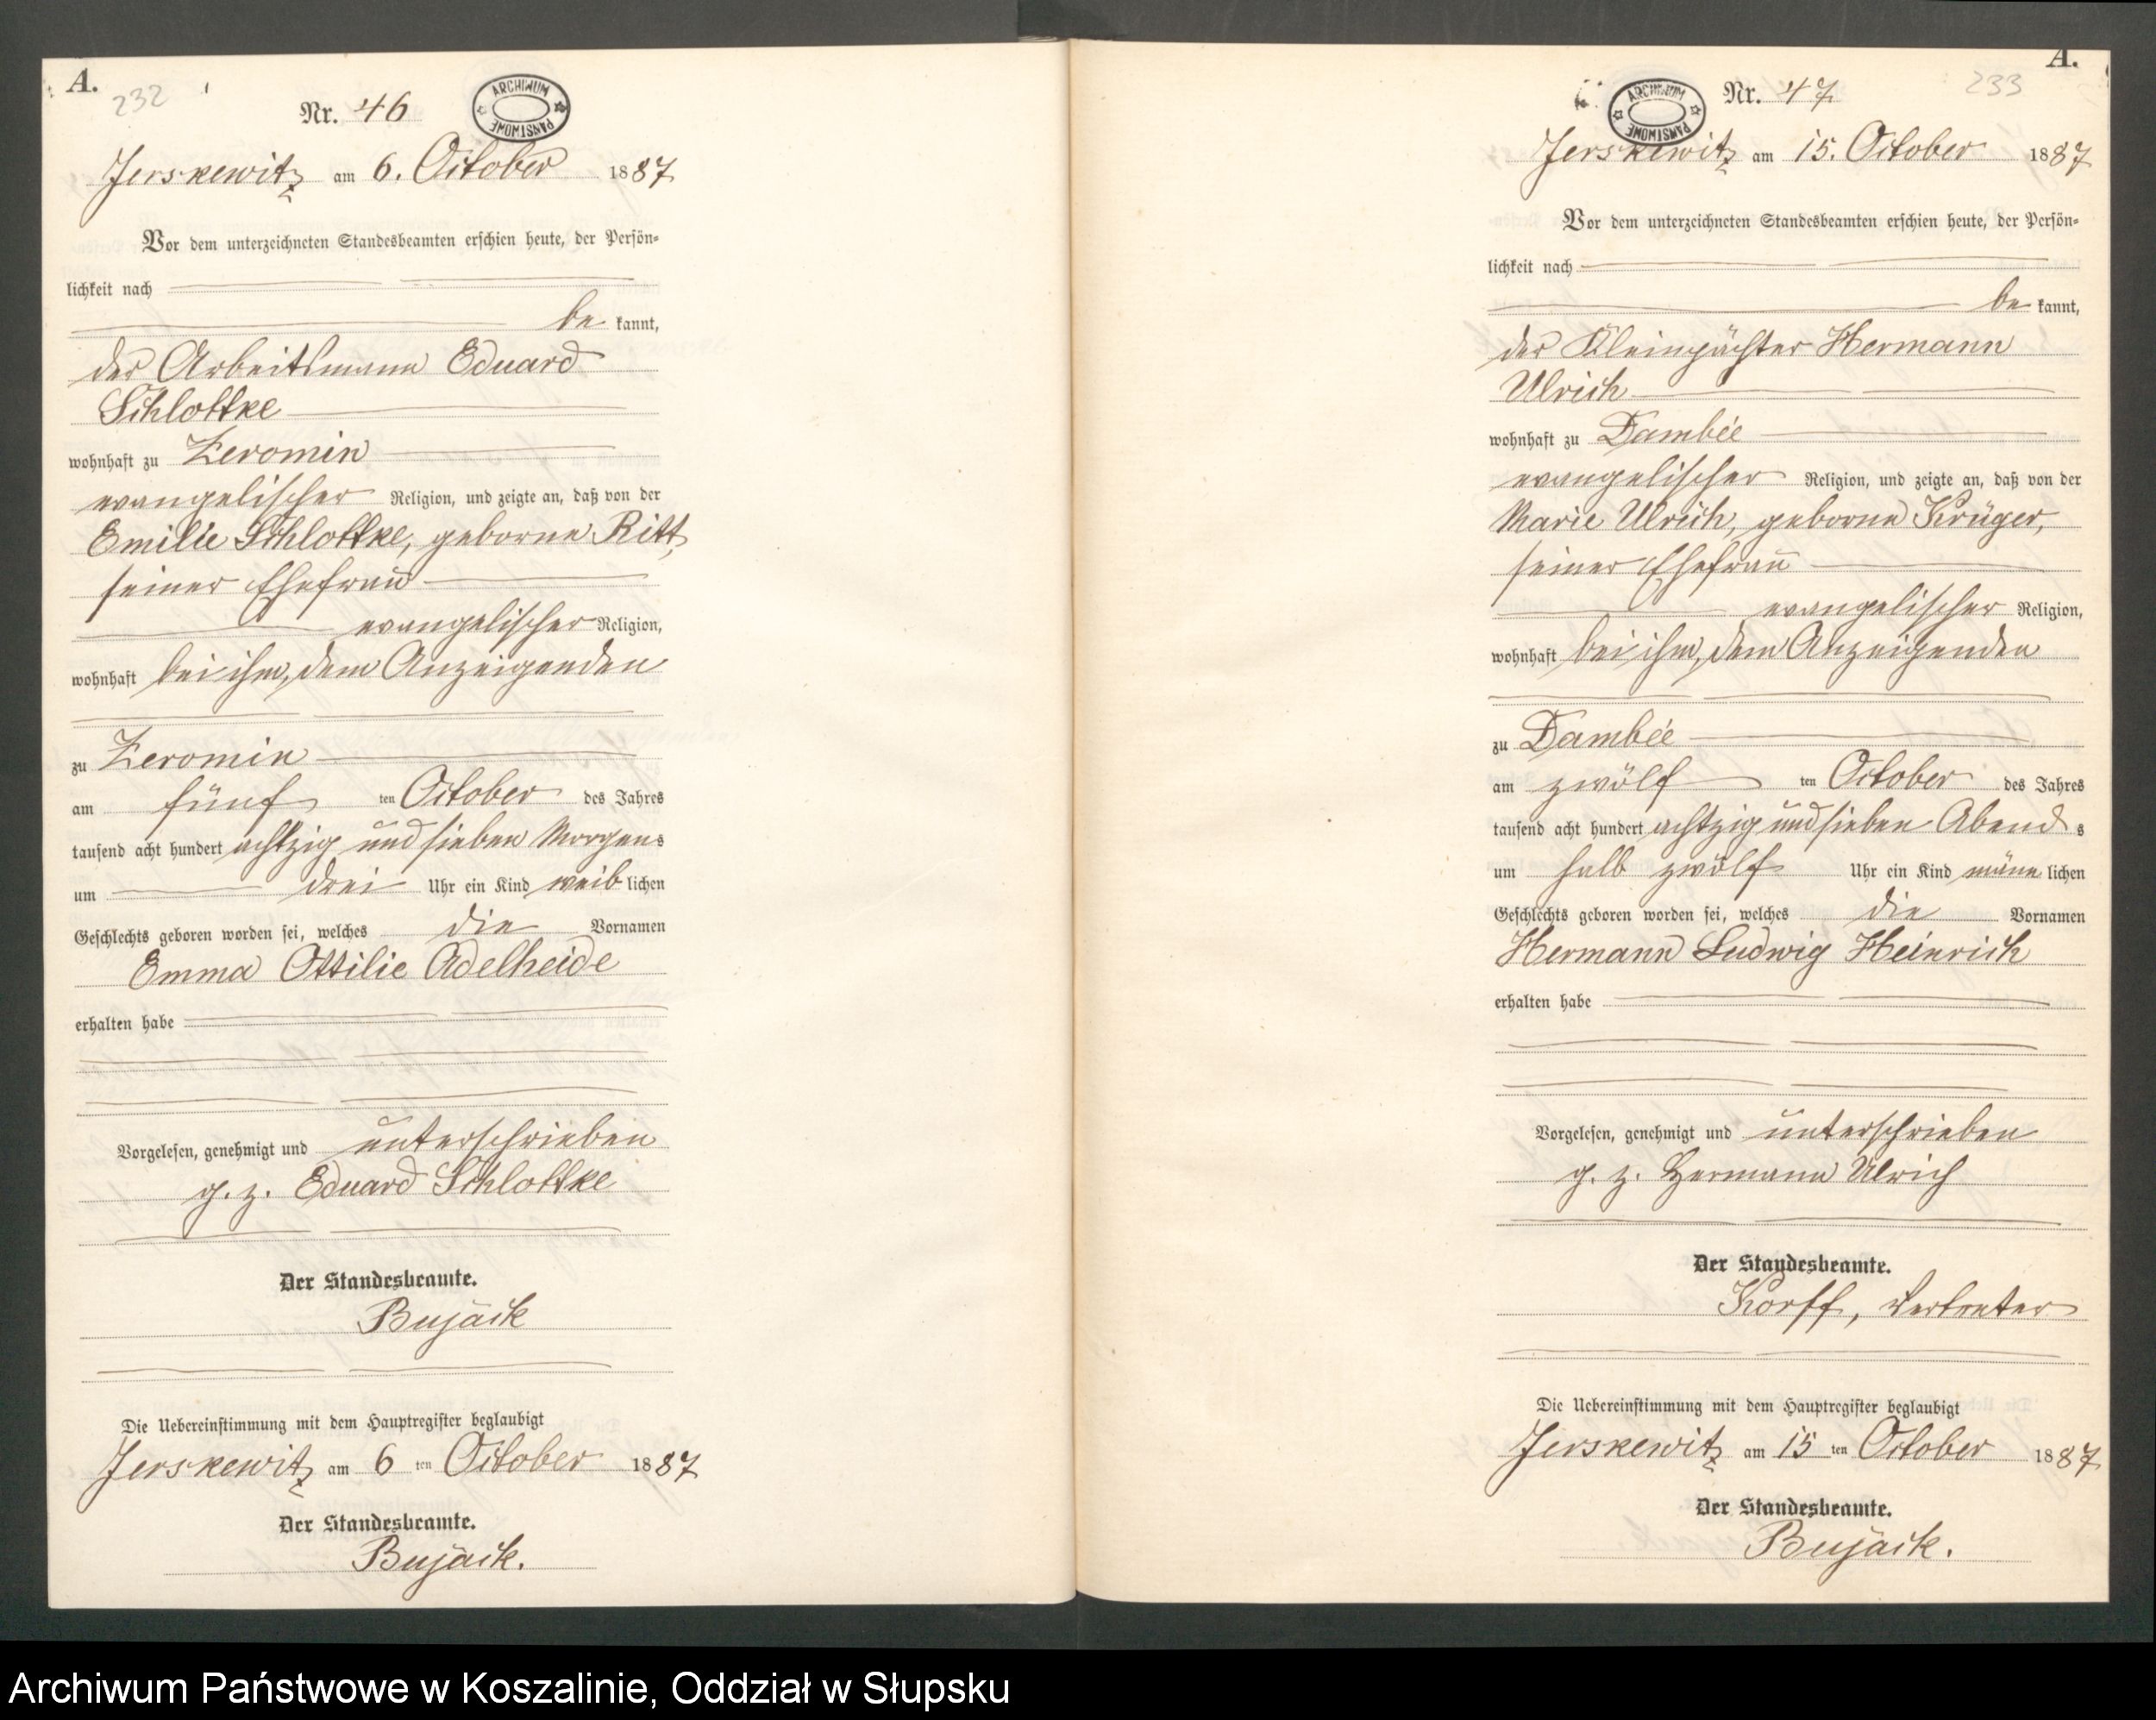 A.
232
Nr. 46
ARCHIWUM PAŃSTWOWE
Jerskewitz am 6. October 1887
Vor dem unterzeichneten Standesbeamten erschien heute, der Persön-
lichkeit nach
be kannt,
der Arbeitsmann Eduard
Schlottke
wohnhaft zu Zeromin
evangelischer Religion, und zeigte an, daß von der
Emilie Schlottke, geborne Ritt,
seiner Ehefrau
evangelischer Religion,
wohnhaft bei ihm, dem Anzeigenden
zu Zeromin
am fünf ten October des Jahres
tausend acht hundert achtzig und sieben Morgens
um drei Uhr ein Kind weib lichen
Geschlechts geboren worden sei, welches die Vornamen
Emma Ottilie Adelheide
erhalten habe
Vorgelesen, genehmigt und unterschrieben
g. z. Eduard Schlottke
Der Standesbeamte.
Bujack
Die Uebereinstimmung mit dem Hauptregister beglaubigt
Jerskewitz am 6 ten October 1887
Der Standesbeamte.
Bujack.
A.
233
Nr. 47
ARCHIWUM PAŃSTWOWE
Jerskewitz am 15. October 1887
Vor dem unterzeichneten Standesbeamten erschien heute, der Persön-
lichkeit nach
be kannt,
der Kleinpächter Hermann
Ulrich
wohnhaft zu Dambée
evangelischer Religion, und zeigte an, daß von der
Marie Ulrich, geborne Krüger,
seiner Ehefrau
evangelischer Religion,
wohnhaft bei ihm, dem Anzeigenden
zu Dambée
am zwölf ten October des Jahres
tausend acht hundert achtzig und sieben Abend s
um halb zwölf Uhr ein Kind männ lichen
Geschlechts geboren worden sei, welches die Vornamen
Hermann Ludwig Heinrich
erhalten habe
Vorgelesen, genehmigt und unterschrieben
g. z. Hermann Ulrich
Der Standesbeamte.
Korff, Vertreter
Die Uebereinstimmung mit dem Hauptregister beglaubigt
Jerskewitz am 15 ten October 1887
Der Standesbeamte.
Bujack.
Archiwum Państwowe w Koszalinie, Oddział w Słupsku